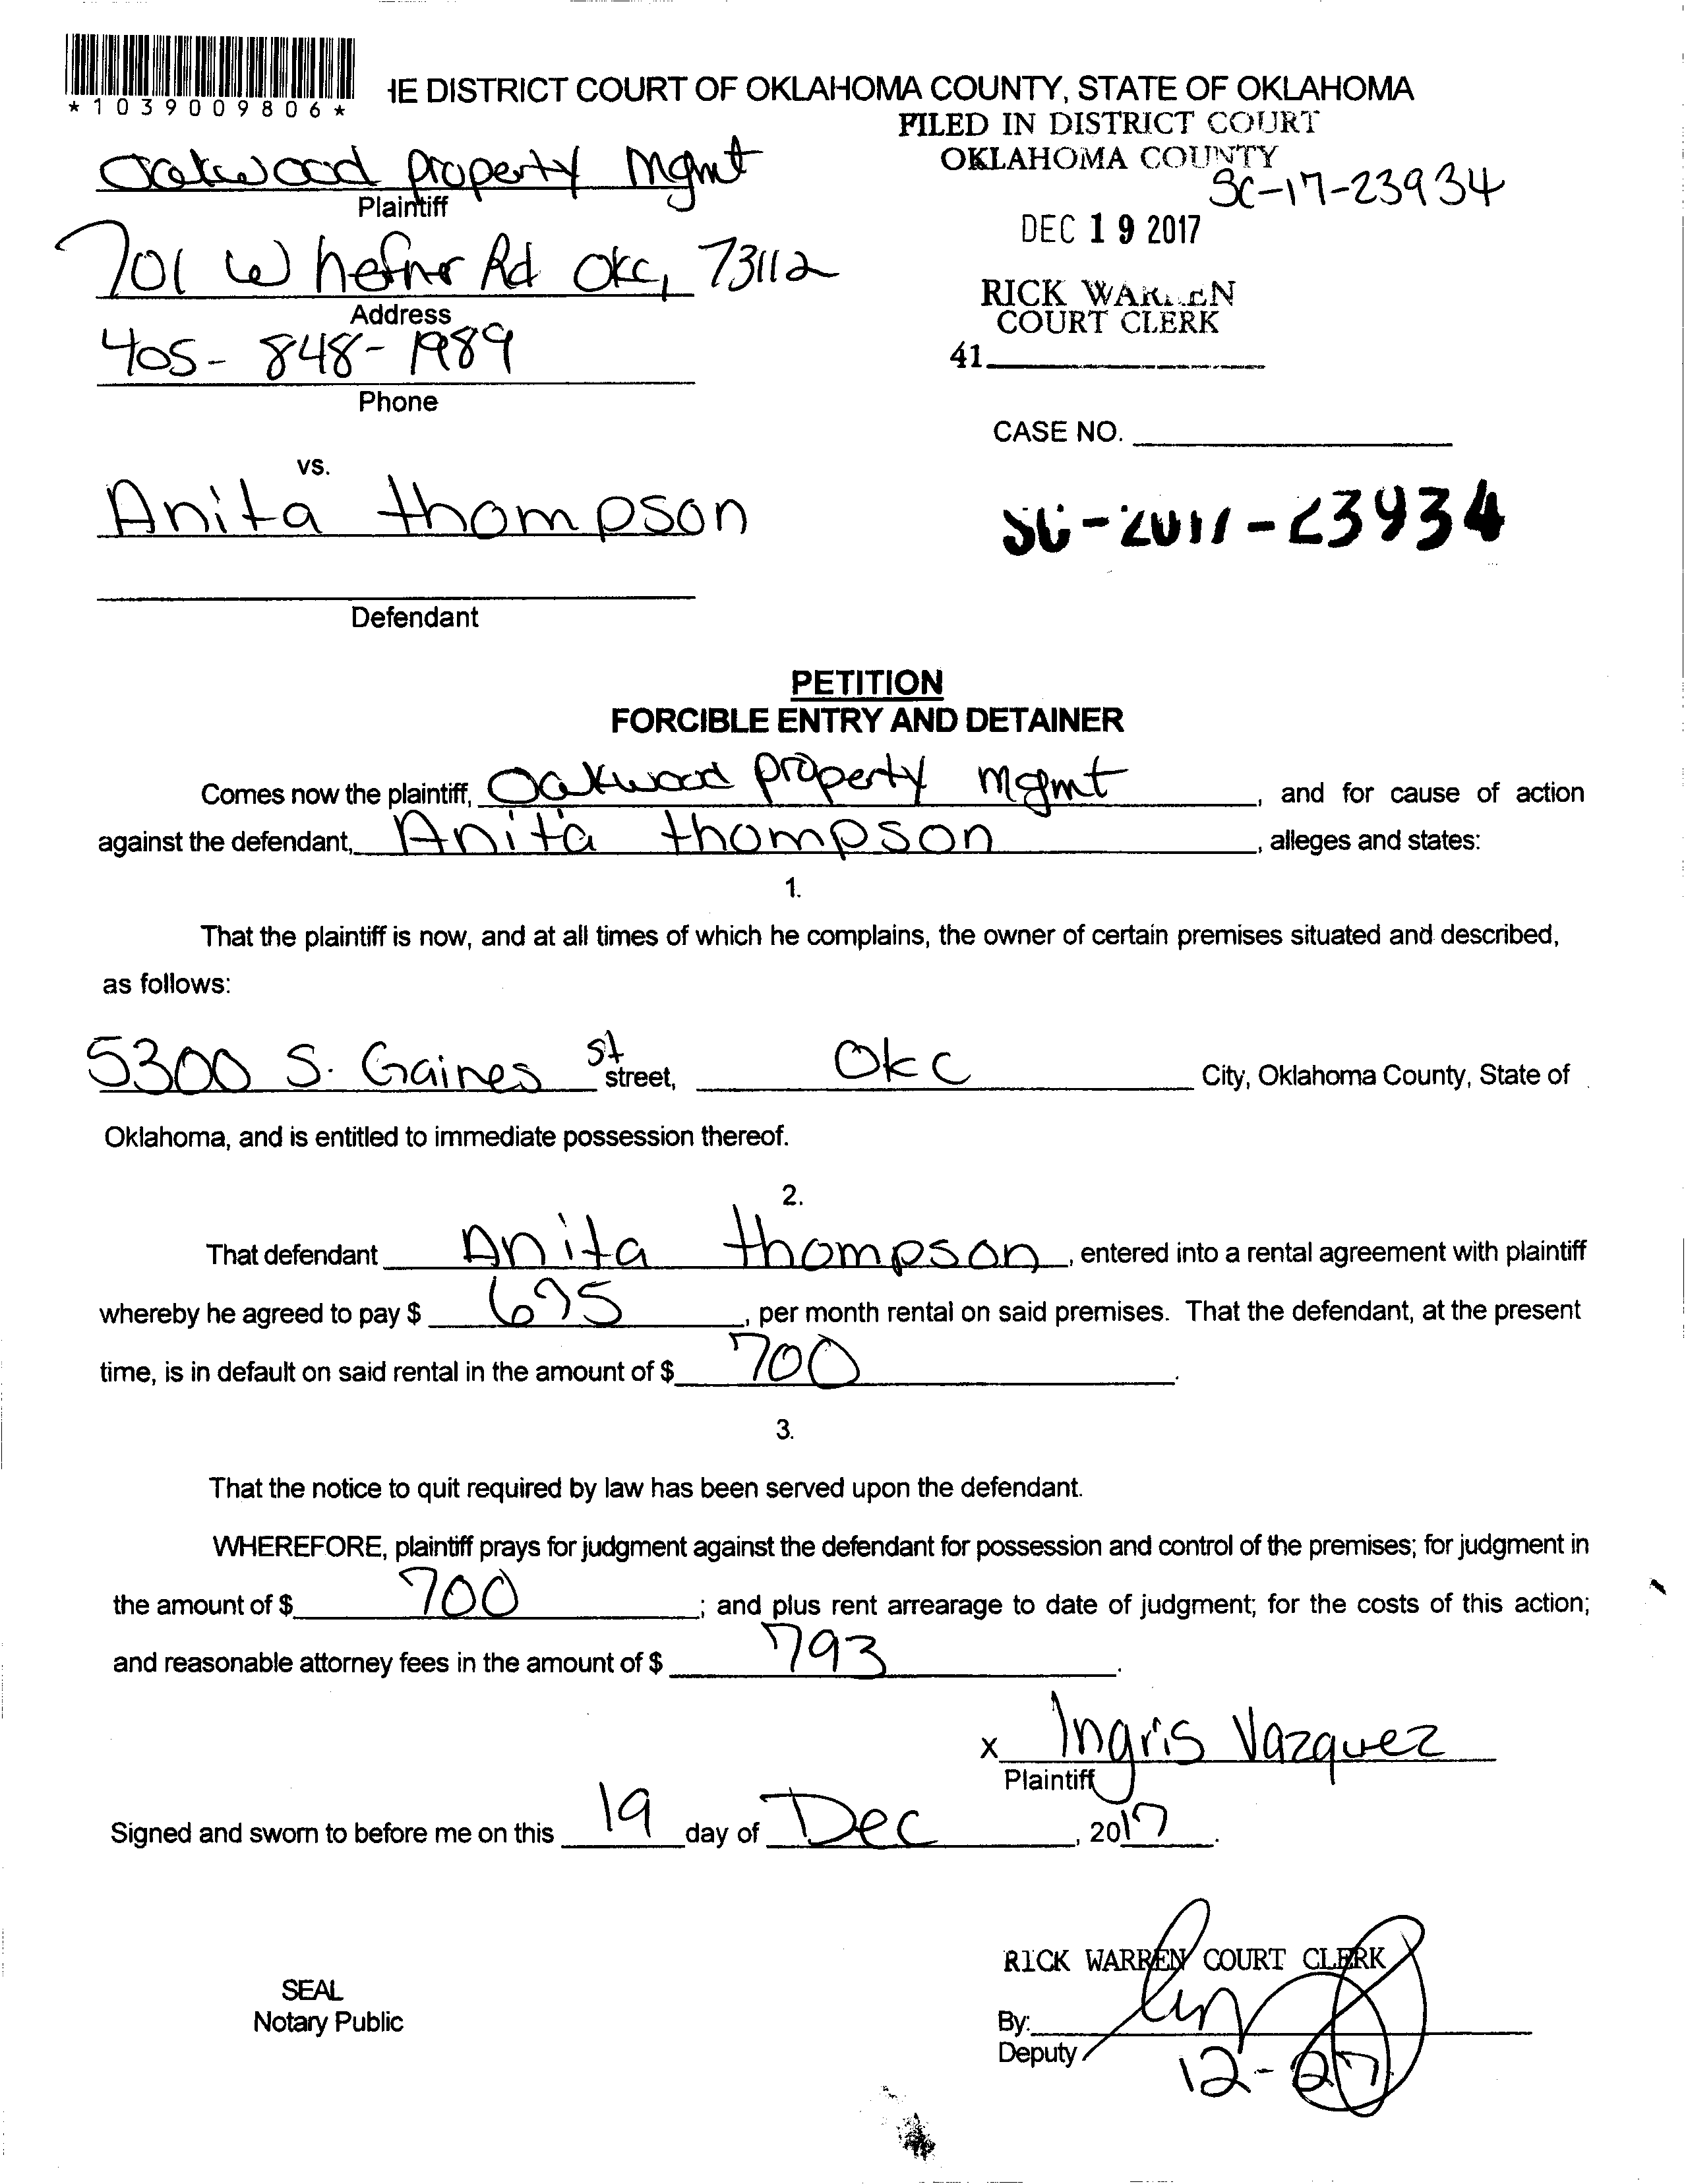 *1039009806*
IE DISTRICT COURT OF OKLAHOMA COUNTY, STATE OF OKLAHOMA
FILED IN DISTRICT COURT
OKLAHOMA COUNTY
SC-17-23934
DEC 19 2017
RICK WARREN
COURT CLERK
41
Oakwood property Mgmt
Plaintiff
701 W hefner Rd OKC, 73112
Address
405-848-1989
Phone
CASE NO.
SC-2017-23934
vs.
Anita thompson
Defendant
PETITION
FORCIBLE ENTRY AND DETAINER
Comes now the plaintiff, Oakwood property mgmt, and for cause of action
against the defendant, Anita thompson, alleges and states:
1.
That the plaintiff is now, and at all times of which he complains, the owner of certain premises situated and described,
as follows:
5300 S. Gaines st street, OKC City, Oklahoma County, State of
Oklahoma, and is entitled to immediate possession thereof.
2.
That defendant Anita thompson, entered into a rental agreement with plaintiff
whereby he agreed to pay $ 695, per month rental on said premises. That the defendant, at the present
time, is in default on said rental in the amount of $ 700.
3.
That the notice to quit required by law has been served upon the defendant.
WHEREFORE, plaintiff prays for judgment against the defendant for possession and control of the premises; for judgment in
the amount of $ 700; and plus rent arrearage to date of judgment; for the costs of this action;
and reasonable attorney fees in the amount of $ 793.
x Ingris Vazquez
Plaintiff
Signed and sworn to before me on this 19 day of Dec, 2017.
RICK WARREN COURT CLERK
SEAL
Notary Public
By:
Deputy
12-27